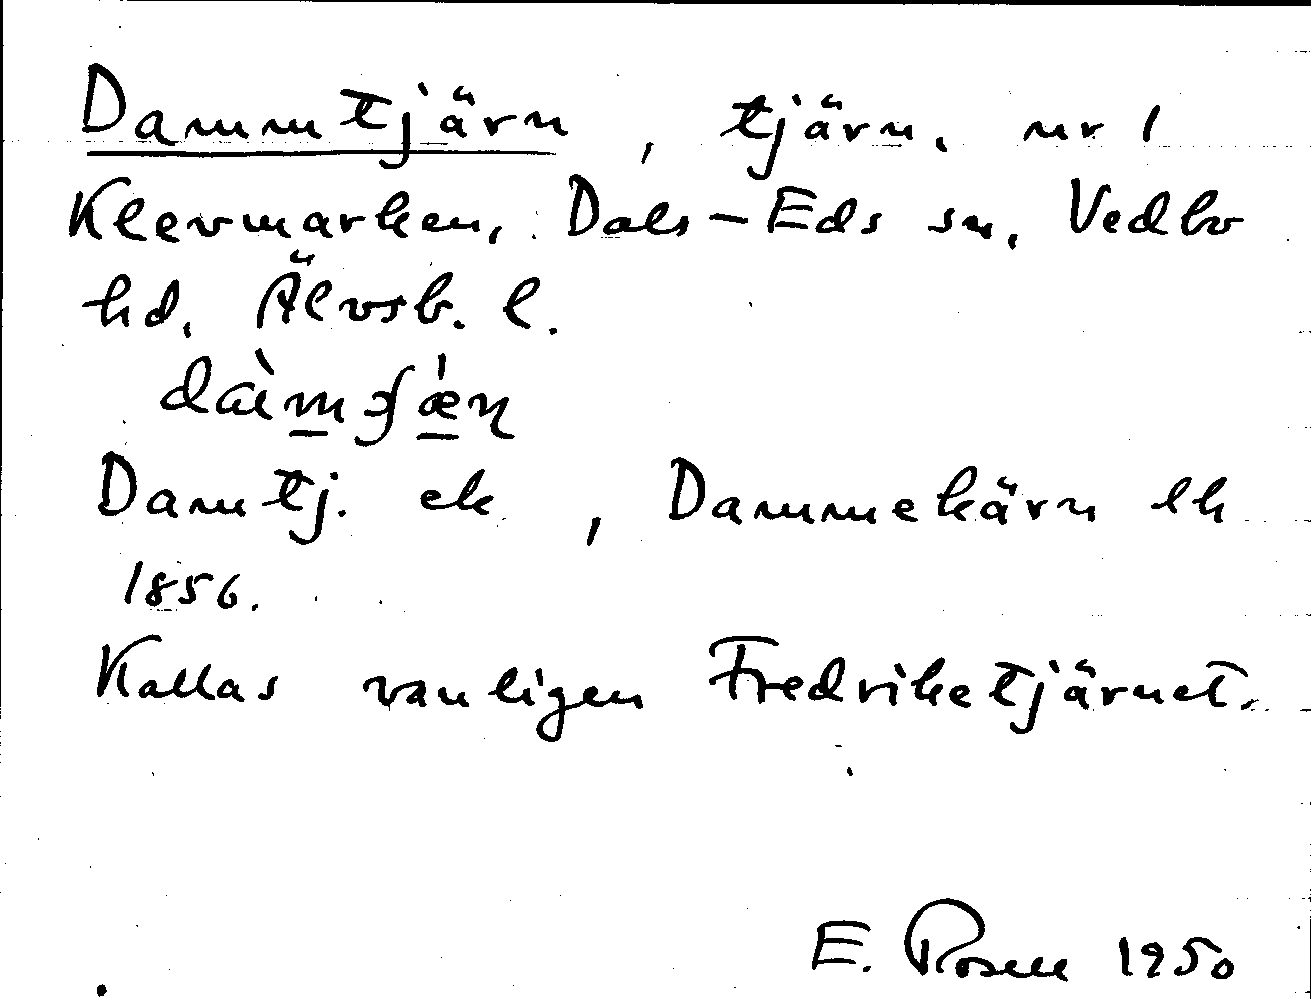 Dammtjärn, tjärn, nr 1
Klevmarken, Dals-Eds sn, Vedbo
hd, Älvsb. l.
Damtj. ek, Dammekärn lh
1856.
Kallas vanligen Fredriketjärnet.
E. Rosell 1950